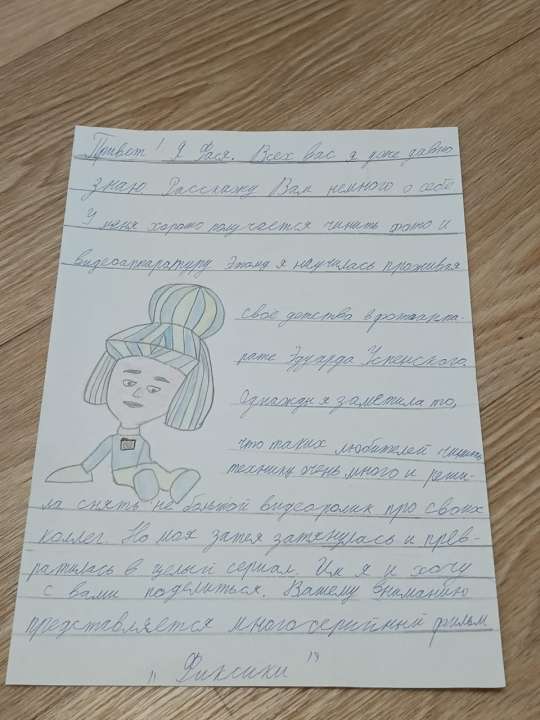 Привет! Я Фася. Всех вас я уже давно
знаю. Расскажу Вам немного о себе
У меня хорошо получается чинить фото и
видеоаппаратуру. Этому я научилась проживая
свое детство в фотоаппа-
рате Эдуарда Успенского.
Однажды я заметила то,
что таких любителей чинить
технику очень много и реши-
ла снять не большой видеоролик про своих
коллег. Но моя затея затянулась и прев-
ратилась в целый сериал. Им я и хочу
с вами поделиться. Вашему вниманию
представляется многосерийный фильм
„Фиксики"